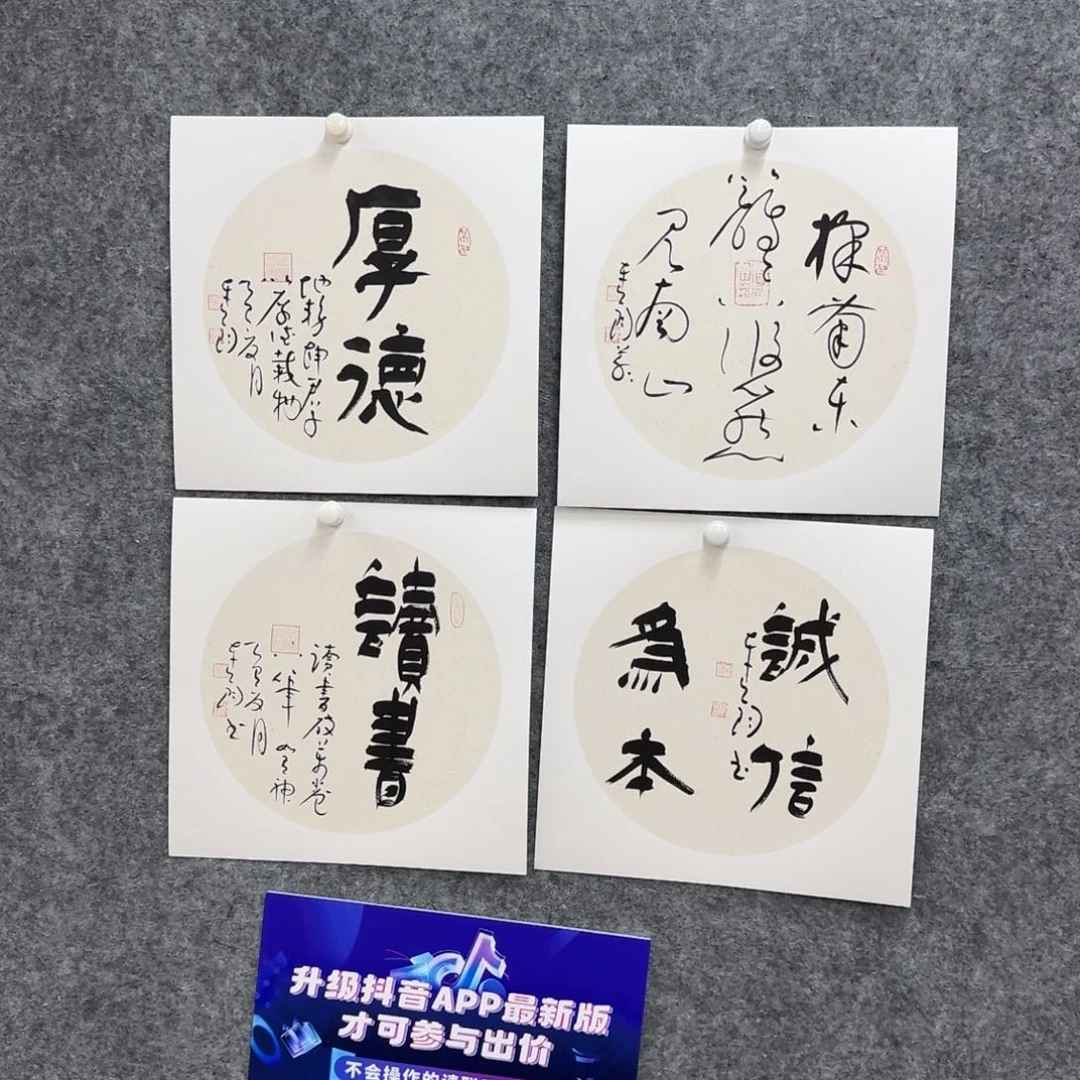 厚德
地势坤君子
以厚德載物
夏月
採菊东
籬下悠然
见南山
讀書
读书破万卷
下筆如有神
夏月
誠信
爲本
升级抖音APP最新版
才可参与出价
不会操作的请联